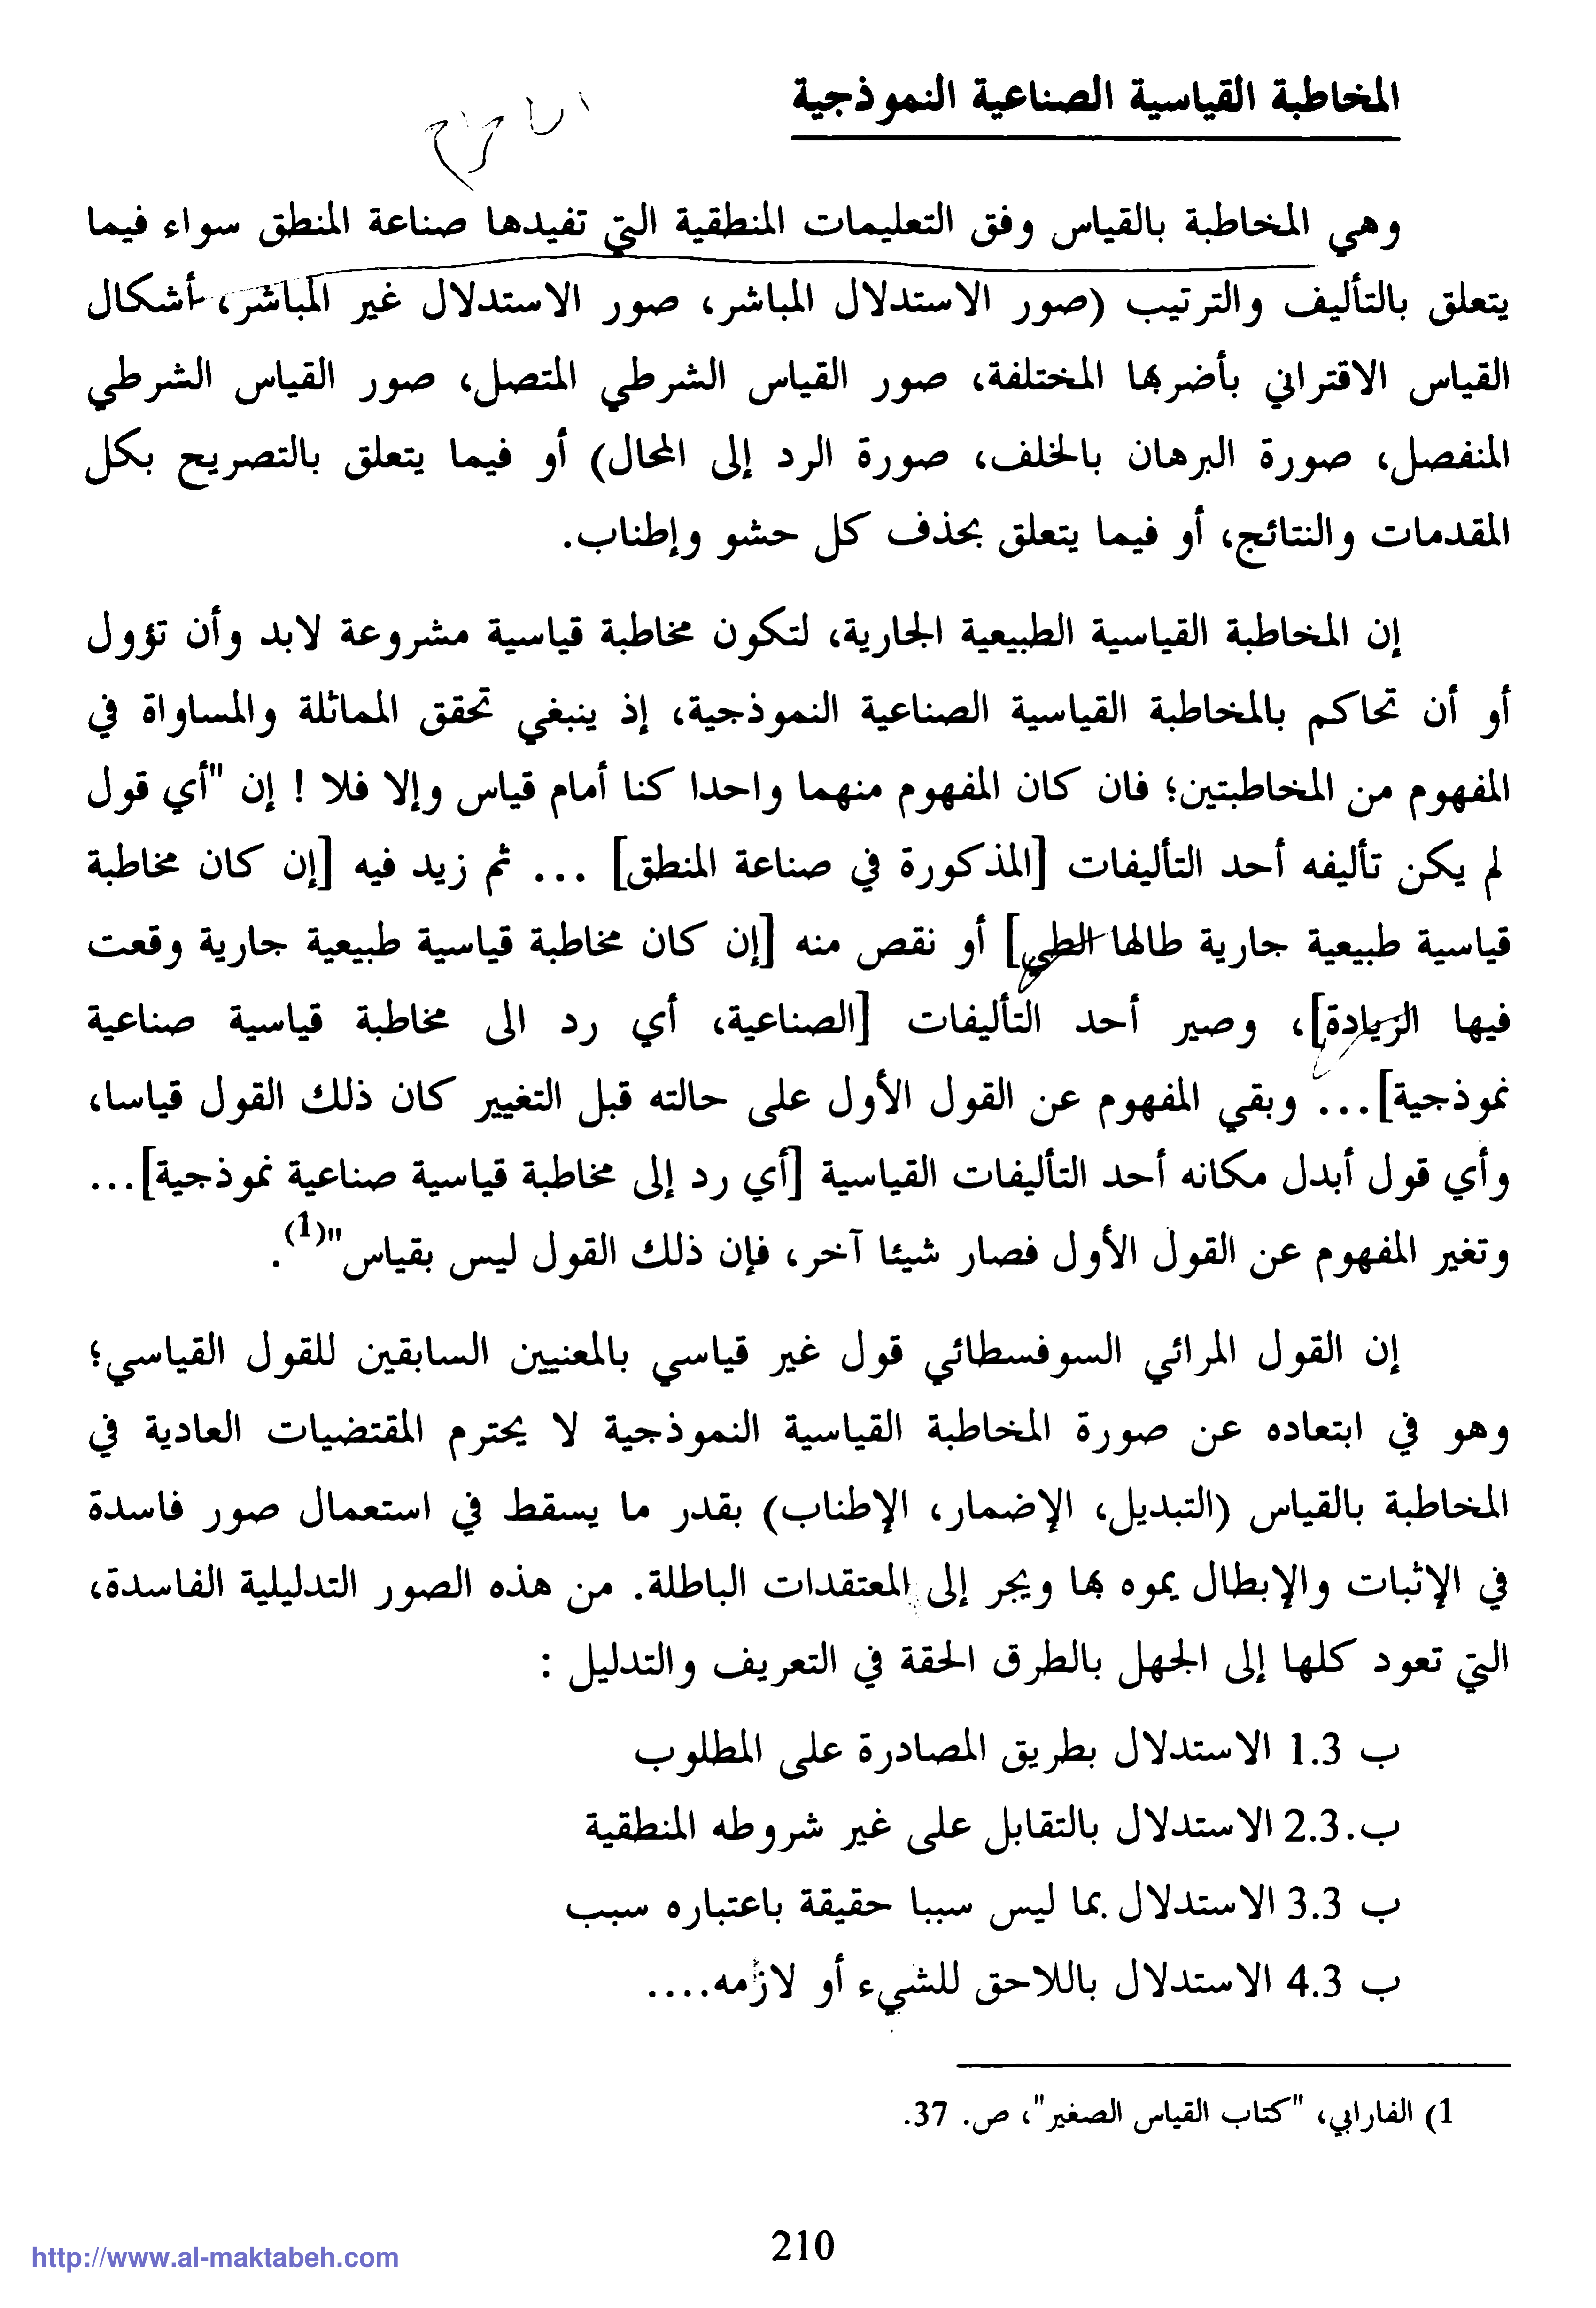 المخاطبة القياسية الصناعية النموذجية
وهي المخاطبة بالقياس وفق التعليمات المنطقية التي تفيدها صناعة المنطق سواء فيما
يتعلق بالتأليف والترتيب (صور الاستدلال المباشر، صور الاستدلال غير المباشر، أشكال
القياس الاقتراني بأضربها المختلفة، صور القياس الشرطي المتصل، صور القياس الشرطي
المنفصل، صورة البرهان بالخلف، صورة الرد إلى المحال) أو فيما يتعلق بالتصريح بكل
المقدمات والنتائج، أو فيما يتعلق بحذف كل حشو وإطناب.
إن المخاطبة القياسية الطبيعية الجارية، لتكون مخاطبة قياسية مشروعة لابد وأن تؤول
أو أن تحاكم بالمخاطبة القياسية الصناعية النموذجية، إذ ينبغي تحقق المماثلة والمساواة في
المفهوم من المخاطبتين؛ فان كان المفهوم منهما واحدا كنا أمام قياس وإلا فلا ! إن "أي قول
لم يكن تأليفه أحد التأليفات [المذكورة في صناعة المنطق] ... ثم زيد فيه [إن كان مخاطبة
قياسية طبيعية جارية طالها الطي] أو نقص منه [إن كان مخاطبة قياسية طبيعية جارية وقعت
فيها الزيادة]، وصير أحد التأليفات [الصناعية، أي رد الى مخاطبة قياسية صناعية
نموذجية]... وبقي المفهوم عن القول الأول على حالته قبل التغيير كان ذلك القول قياسا،
وأي قول أبدل مكانه أحد التأليفات القياسية [أي رد إلى مخاطبة قياسية صناعية نموذجية]...
وتغير المفهوم عن القول الأول فصار شيئا آخر، فإن ذلك القول ليس بقياس"(1).
إن القول المرائي السوفسطائي قول غير قياسي بالمعنيين السابقين للقول القياسي؛
وهو في ابتعاده عن صورة المخاطبة القياسية النموذجية لا يحترم المقتضيات العادية في
المخاطبة بالقياس (التبديل، الإضمار، الإطناب) بقدر ما يسقط في استعمال صور فاسدة
في الإثبات والإبطال يموه بها ويجر إلى المعتقدات الباطلة. من هذه الصور التدليلية الفاسدة،
التي تعود كلها إلى الجهل بالطرق الحقة في التعريف والتدليل :
ب 1.3 الاستدلال بطريق المصادرة على المطلوب
ب.2.3 الاستدلال بالتقابل على غير شروطه المنطقية
ب 3.3 الاستدلال بما ليس سببا حقيقة باعتباره سبب
ب 4.3 الاستدلال باللاحق للشيء أو لازمه....
1) الفارابي، "كتاب القياس الصغير"، ص. 37.
210
http://www.al-maktabeh.com